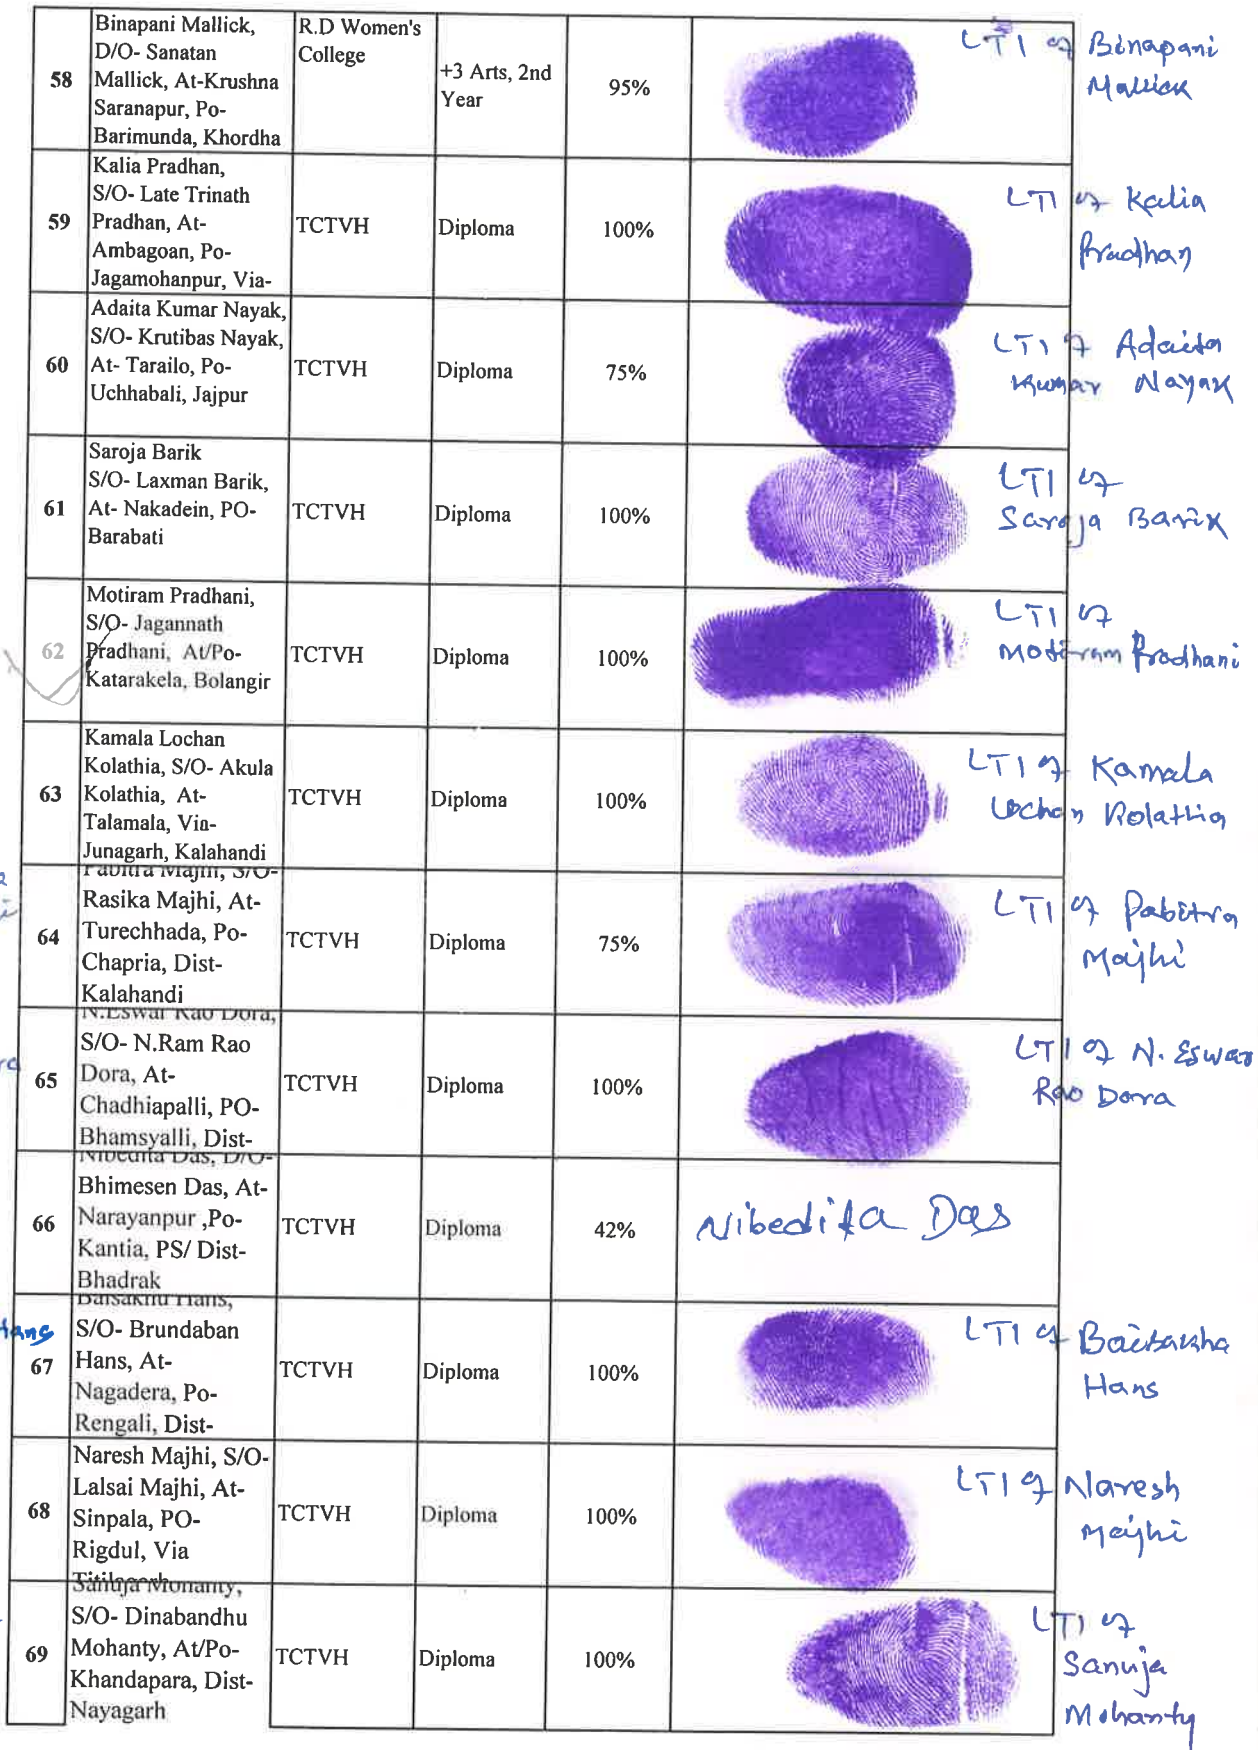 58
Binapani Mallick,
D/O- Sanatan
Mallick, At-Krushna
Saranapur, Po-
Barimunda, Khordha
R.D Women's
College
+3 Arts, 2nd
Year
95%
LTI of Binapani
Mallick
59
Kalia Pradhan,
S/O- Late Trinath
Pradhan, At-
Ambagoan, Po-
Jagamohanpur, Via-
TCTVH
Diploma
100%
LTI of Kalia
Pradhan
60
Adaita Kumar Nayak,
S/O- Krutibas Nayak,
At- Tarailo, Po-
Uchhabali, Jajpur
TCTVH
Diploma
75%
LTI of Adaita
Kumar Nayak
61
Saroja Barik
S/O- Laxman Barik,
At- Nakadein, PO-
Barabati
TCTVH
Diploma
100%
LTI of
Saroja Barik
62
Motiram Pradhani,
S/O- Jagannath
Pradhani, At/Po-
Katarakela, Bolangir
TCTVH
Diploma
100%
LTI of
Motiram Pradhani
63
Kamala Lochan
Kolathia, S/O- Akula
Kolathia, At-
Talamala, Via-
Junagarh, Kalahandi
TCTVH
Diploma
100%
LTI of Kamala
Lochan Kolathia
64
Pabitra Majhi, S/O-
Rasika Majhi, At-
Turechhada, Po-
Chapria, Dist-
Kalahandi
TCTVH
Diploma
75%
LTI of Pabitra
Majhi
65
N.Eswar Rao Dora,
S/O- N.Ram Rao
Dora, At-
Chadhiapalli, PO-
Bhamsyalli, Dist-
TCTVH
Diploma
100%
LTI of N. Eswar
Rao Dora
66
Nibedita Das, D/O-
Bhimesen Das, At-
Narayanpur ,Po-
Kantia, PS/ Dist-
Bhadrak
TCTVH
Diploma
42%
Nibedita Das
67
Hans,
S/O- Brundaban
Hans, At-
Nagadera, Po-
Rengali, Dist-
TCTVH
Diploma
100%
LTI of Baisakha
Hans
68
Naresh Majhi, S/O-
Lalsai Majhi, At-
Sinpala, PO-
Rigdul, Via
TCTVH
Diploma
100%
LTI of Naresh
Majhi
69
Mohanty,
S/O- Dinabandhu
Mohanty, At/Po-
Khandapara, Dist-
Nayagarh
TCTVH
Diploma
100%
LTI of
Sanuja
Mohanty